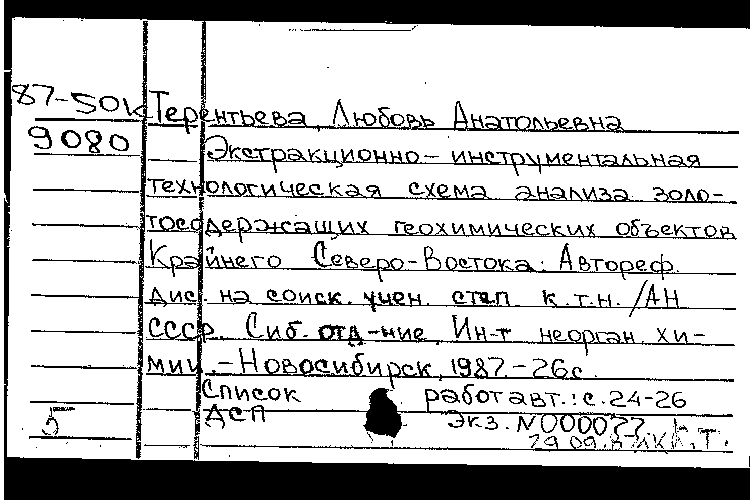 87-50к Терентьева, Любовь Анатольевна
9080
Экстракционно-инструментальная
технологическая схема анализа золо-
тосодержащих геохимических объектов
Крайнего Северо-Востока: Автореф.
дис. на соиск. учен. степ. к.т.н. /АН
СССР. Сиб. отд-ние. Ин-т неорган. хи-
мии. - Новосибирск, 1987. - 26с.
Список работ авт.: с. 24-26
5 ДСП Экз. N000077
29.09. К.Т.